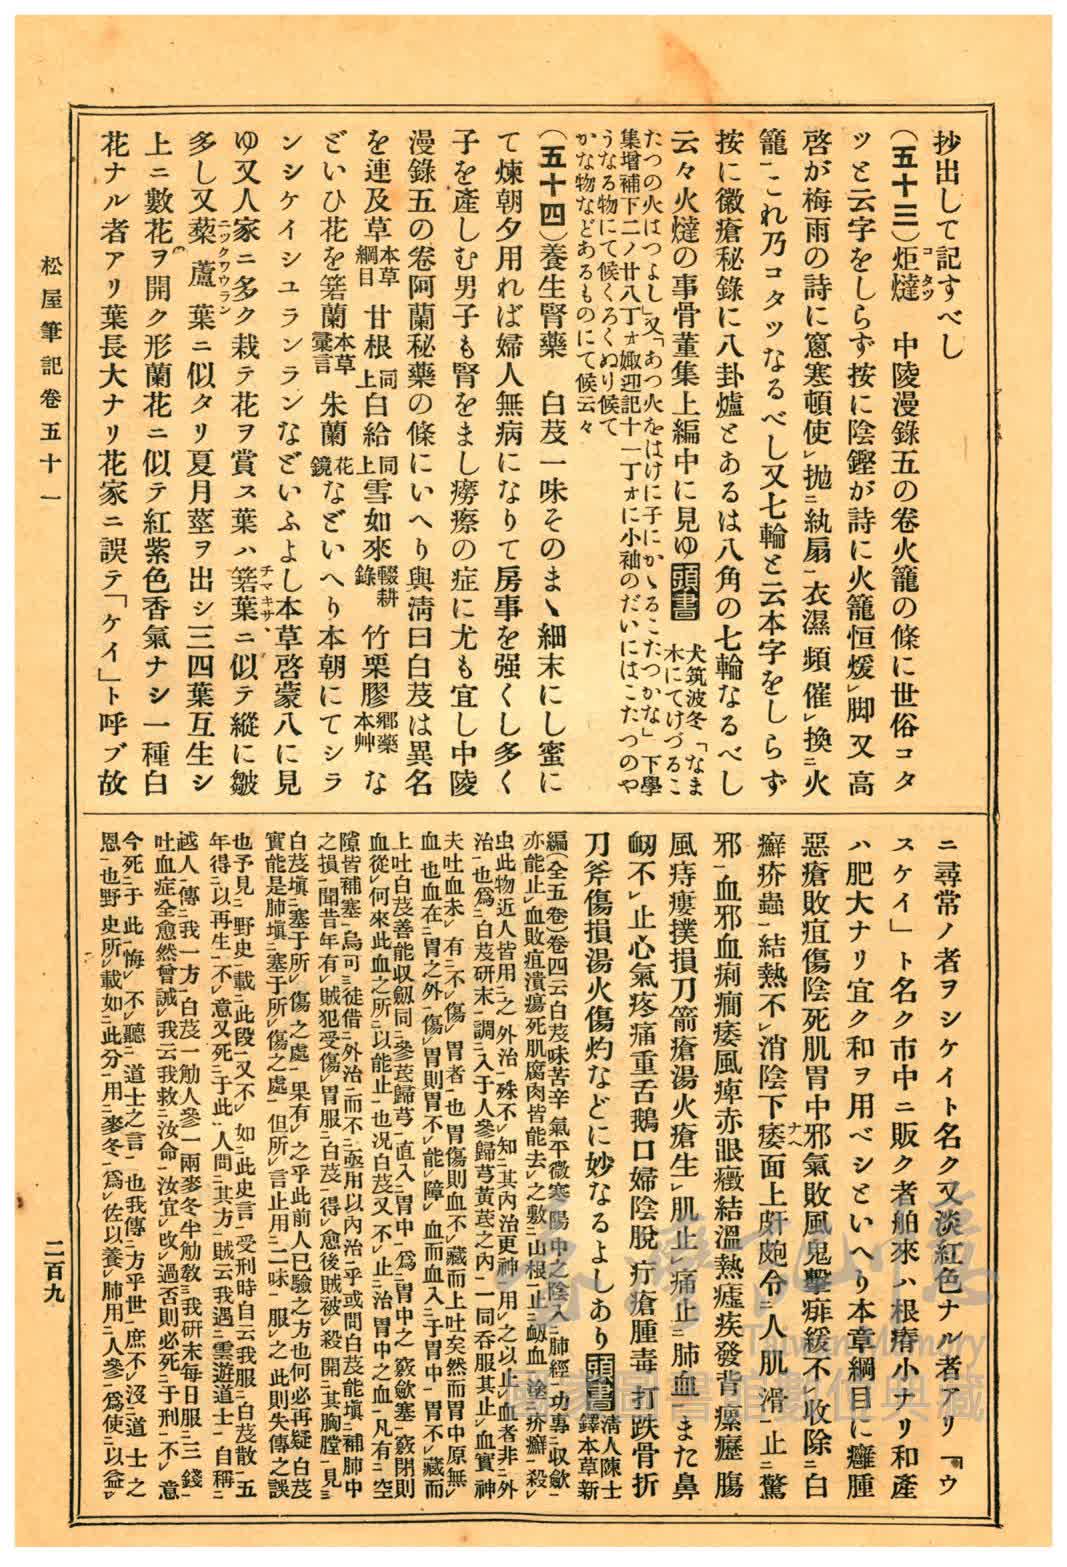 抄出して記すべし
（五十三）炬燵コタツ　中陵漫錄五の卷火籠の條に世俗コタ
ツと云字をしらず按に陰鏗が詩に火籠恒煖レ脚又高
啓が梅雨の詩に窻寒頓使レ抛ニ紈扇一衣濕頻催レ換ニ火
籠一これ乃コタツなるべし又七輪と云本字をしらず
按に黴瘡秘錄に八卦爐とあるは八角の七輪なるべし
云々火燵の事骨董集上編中に見ゆ頭書　犬筑波冬「なま木にてけづるこ
たつの火はつよし」又「あつ火をはけに子にかゝるこたつかな」下學
集增補下二ノ廿八丁ォ娵迎記十一丁ォに小袖のだいにはこたつのや
うなる物にて候くろくぬり候て
かな物などあるものにて候云々
（五十四）養生腎藥　白芨一味そのまゝ細末にし蜜に
て煉朝夕用れば婦人無病になりて房事を强くし多く
子を產しむ男子も腎をまし癆瘵の症に尤も宜し中陵
漫錄五の卷阿蘭秘藥の條にいへり與淸曰白芨は異名
を連及草本草綱目甘根同上白給同上雪如來輟耕錄竹栗膠鄕藥本艸な
どいひ花を箬蘭本草彙言朱蘭花鏡などいへり本朝にてシラ
ンシケイシユランランなどいふよし本草啓蒙八に見
ゆ又人家ニ多ク栽テ花ヲ賞ス葉ハ箬葉チマキサヽニ似テ縱に皺
多し又藜蘆ニツクワウラン葉ニ似タリ夏月莖ヲ出シ三四葉互生シ
上ニ數花ヲ開ク形蘭花ニ似テ紅紫色香氣ナシ一種白
花ナル者アリ葉長大ナリ花家ニ誤テ「ケイ」ト呼ブ故
ニ尋常ノ者ヲシケイト名ク又淡紅色ナル者アリ「ウ
スケイ」ト名ク市中ニ販ク者舶來ハ根瘠小ナリ和產
ハ肥大ナリ宜ク和ヲ用ベシといへり本草綱目に癰腫
惡瘡敗疽傷陰死肌胃中邪氣敗風鬼擊痱緩不レ收除ニ白
癬疥蟲一結熱不レ消陰下痿ナヘ面上皯皰令ニ人肌滑一止ニ驚
邪一血邪血痢癎痿風痺赤眼癥結溫熱瘧疾發背瘰癧腸
風痔瘻撲損刀箭瘡湯火瘡生レ肌止レ痛止ニ肺血一また鼻
衂不レ止心氣疼痛重舌鵝口婦陰脫疔瘡腫毒　打跌骨折
刀斧傷損湯火傷灼などに妙なるよしあり頭書淸人陳士鐸本草新
編（全五卷）卷四云白芨味苦辛氣平微寒陽中之陰入ニ肺經一功專ニ收歛一
亦能止レ血敗疽潰瘍死肌腐肉皆能去レ之敷ニ山根一止ニ衂血一塗ニ疥癬一殺レ
虫此物近人皆用ニ之外治一殊不レ知ニ其內治更神一用レ之以止レ血者非ニ外
治一也爲ニ白芨硏末一調ニ入于人參歸芎黃芪之內一一同吞服其止レ血實神
夫吐血未レ有ニ不レ傷レ胃者一也胃傷則血不レ藏而上吐矣然而胃中原無レ
血一也血在ニ胃之外一傷レ胃則胃不レ能レ障レ血而血入ニ于胃中一胃不レ藏而
上吐白芨善能收歛同ニ參芪歸芎一直入ニ胃中一爲ニ胃中之竅歛塞一竅閉則
血從レ何來此血之所ニ以能止一也況白芨又不レ止レ治ニ胃中之血一凡有ニ空
隙皆補塞一烏可三徒借ニ外治一而不ニ亟用以內治一乎或問白芨能塡ニ補肺中
之損一聞昔年有レ賊犯受レ傷レ胃服ニ白芨一得レ愈後賊被レ殺開ニ其胸膛一見ニ
白芨塡ニ塞于所レ傷之處一果有レ之乎此前人已驗之方也何必再疑白芨
實能是肺塡ニ塞于所レ傷之處一但所レ言止用ニ一味一服レ之此則失傳之誤
也予見ニ野史一載ニ此段一又不レ如レ此史言レ受刑時自云我服ニ白芨散一五
年得ニ以再生一不レ意又死ニ于此一人問ニ其方一賊云我遇ニ雲遊道士一自稱ニ
越人一傳ニ我一方一白芨一觔人參一兩麥冬半觔敎ニ我硏末每日服ニ三錢一
吐血症全愈然曾誡レ我云我救ニ汝命一汝宜レ攺レ過否則必死ニ于刑一不レ意
今死ニ于此一悔レ不レ聽ニ道士之言一也我傳ニ方乎世一庶不レ沒ニ道士之
恩一也野史所レ載如レ此分一用ニ麥冬一爲レ佐以養レ肺用ニ人參一爲レ使ニ以益レ
松屋筆記卷五十一
二百九
臺灣記憶
Taiwan Memory
國家圖書館數位典藏